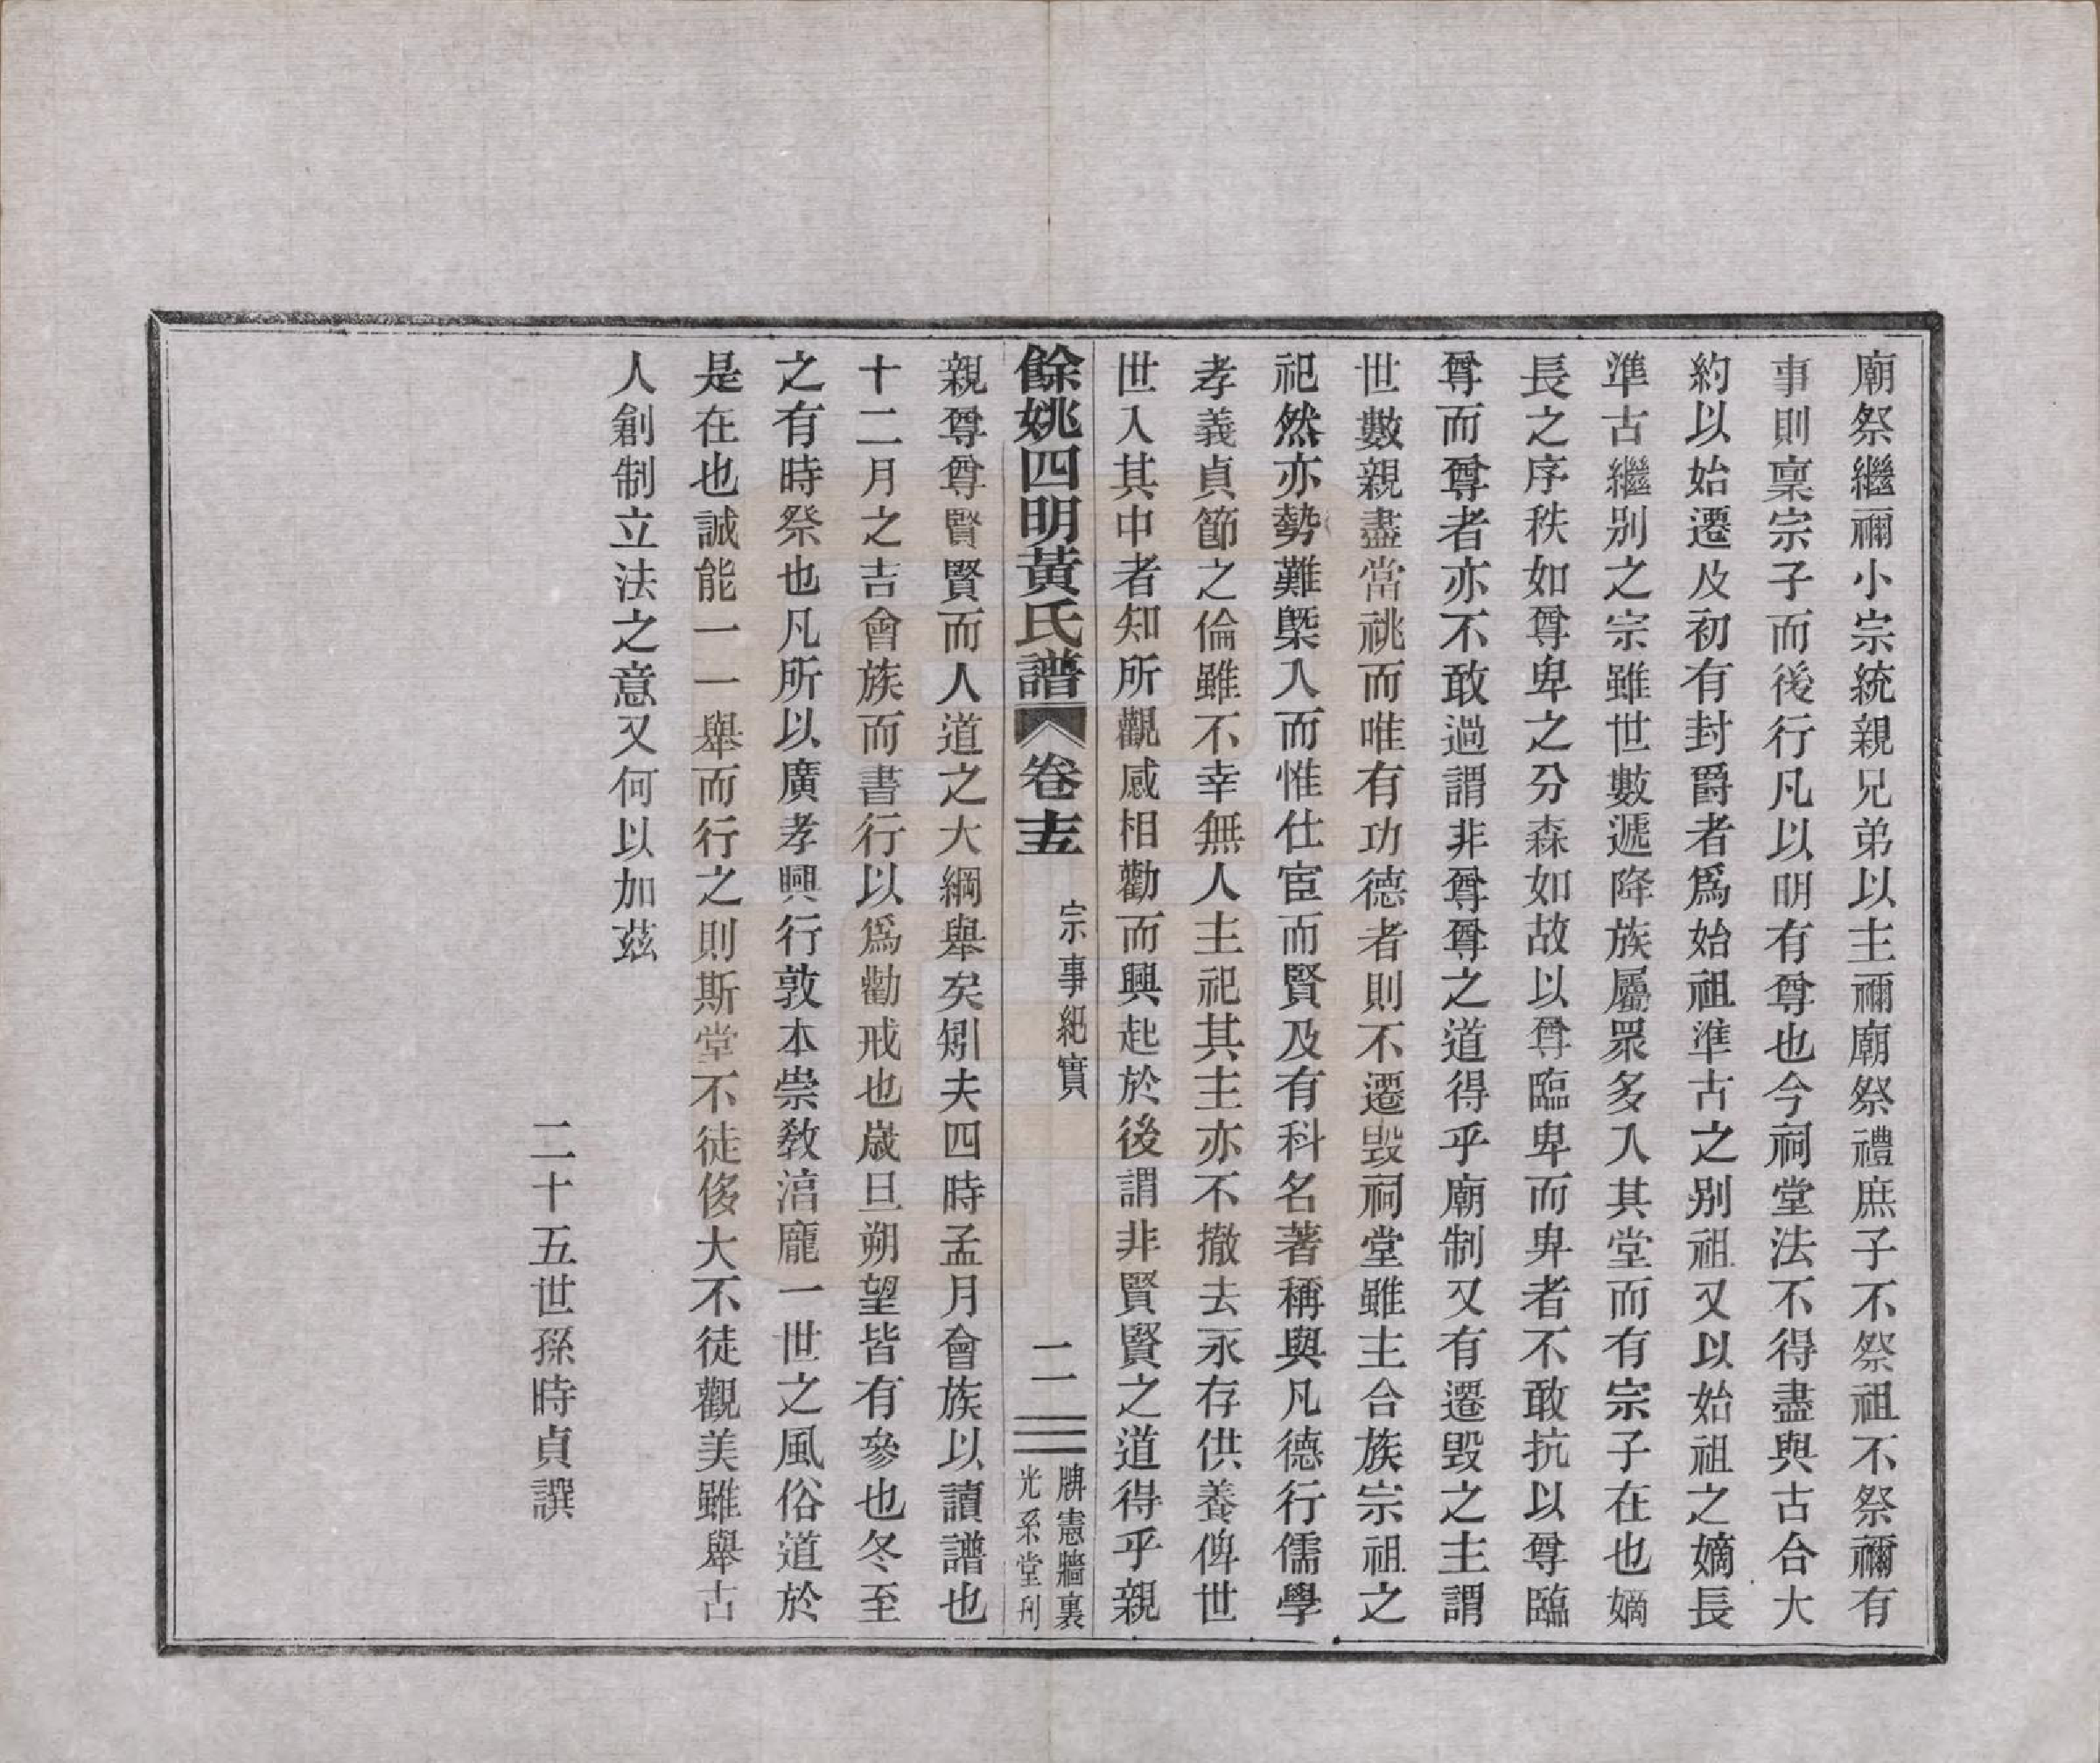 廟祭繼禰小宗統親兄弟以主禰廟祭禮庶子不祭祖不祭禰有
事則稟宗子而後行凡以明有尊也今祠堂法不得盡與古合大
約以始遷及初有封爵者爲始祖準古之別祖又以始祖之嫡長
準古繼別之宗雖世數遞降族屬眾多入其堂而有宗子在也嫡
長之序秩如尊卑之分森如故以尊臨卑而卑者不敢抗以尊臨
尊而尊者亦不敢過謂非尊尊之道得乎廟制又有遷毀之主謂
世數親盡當祧而唯有功德者則不遷毀祠堂雖主合族宗祖之
祀然亦勢難槩入而惟仕宦而賢及有科名著稱與凡德行儒學
孝義貞節之倫雖不幸無人主祀其主亦不撤去永存供養俾世
世入其中者知所觀感相勸而興起於後謂非賢賢之道得乎親
餘姚四明黃氏譜 卷十五 宗事紀實 二 牌憲牆裏 光系堂刊
親尊尊賢賢而人道之大綱舉矣矧夫四時孟月會族以讀譜也
十二月之吉會族而書行以爲勸戒也歲旦朔望皆有參也冬至
之有時祭也凡所以廣孝興行敦本崇敎湻龐一世之風俗道於
是在也誠能一一舉而行之則斯堂不徒侈大不徒觀美雖舉古
人創制立法之意又何以加茲
二十五世孫時貞譔